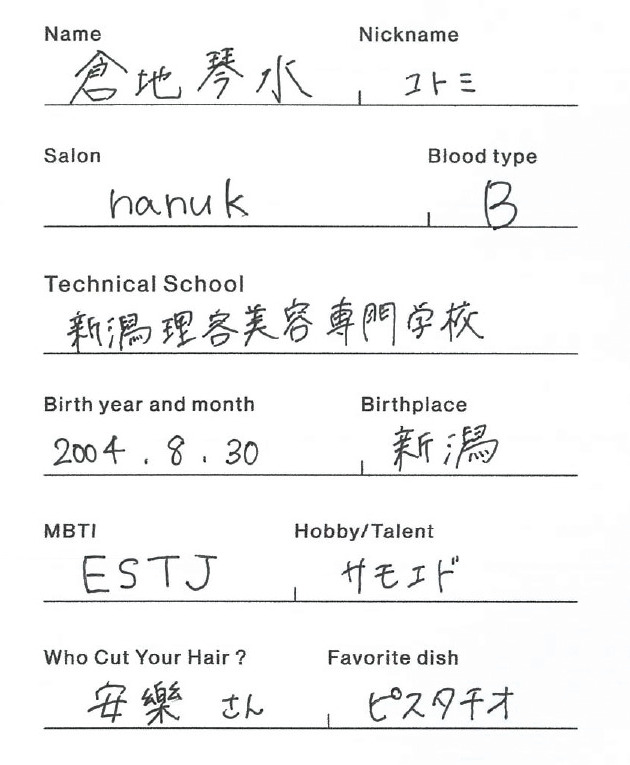 Name Nickname
倉地琴水 コトミ
Salon Blood type
nanuk B
Technical School
新潟理容美容専門学校
Birth year and month Birthplace
2004.8.30 新潟
MBTI Hobby/Talent
ESTJ サモエド
Who Cut Your Hair? Favorite dish
安樂 さん ピスタチオ